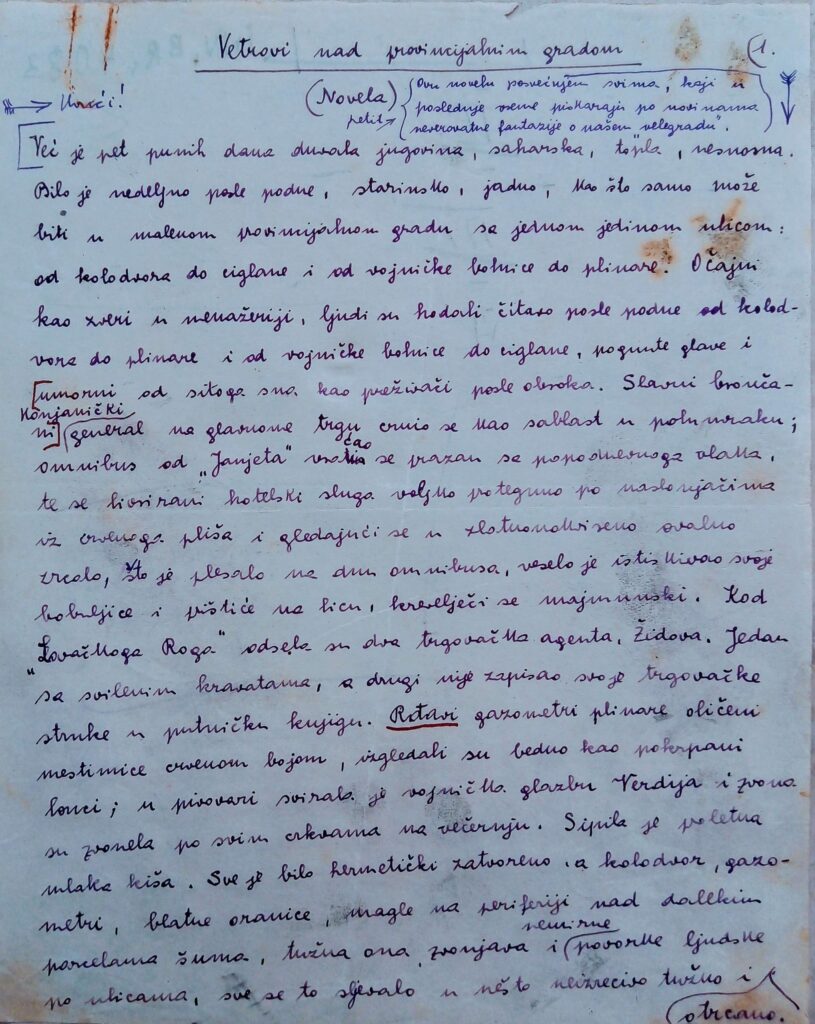 Vetrovi nad provincijalnim gradom
1.
Uvući!
(Novela)
petit
Ovu novelu posvećujem svima, koji u
poslednje vreme piskaraju po novinama
neverovatne fantazije o našem „velegradu".
Već je pet punih dana duvala jugovina, saharska, topla, nesnosna.
Bilo je nedeljno posle podne, starinsko, jadno, kao što samo može
biti u malenom provincijalnom gradu sa jednom jedinom ulicom:
od kolodvora do ciglane i od vojničke bolnice do plinare. Očajni
kao zveri u menažeriji, ljudi su hodali čitavo posle podne od kolod-
vora do plinare i od vojničke bolnice do ciglane, pognute glave i
umorni od sitoga sna kao preživači posle obroka. Slavni bronča-
konjanički
ni general na glavnome trgu crnio se kao sablast u polumraku;
omnibus od „Janjeta" vraćao se prazan sa popodnevnoga vlaka,
te se livrirani hotelski sluga voljko protegnuo po naslonjačima
iz crvenoga pliša i gledajući se u zlatnouokvireno ovalno
zrcalo, što je plesalo na dnu omnibusa, veselo je istiskivao svoje
bobuljice i prištiće na licu, kreveljeći se majmunski. Kod
„Lovačkoga Roga" odsela su dva trgovačka agenta, Židova. Jedan
sa svilenim kravatama, a drugi nije zapisao svoje trgovačke
struke u putničku knjigu. Rđavi gazometri plinare oličeni
mestimice crvenom bojom, izgledali su bedno kao pokrpani
lonci; u pivovari svirala je vojnička glazba Verdija i zvona
su zvonela po svim crkvama na večernju. Sipila je proletna
mlaka kiša. Sve je bilo hermetički zatvoreno, a kolodvor, gazo-
metri, blatne oranice, magle na periferiji nad dalekim
nemirne
parcelama šuma, tužna ona zvonjava i povorke ljudske
po ulicama, sve se to slevalo u nešto neizrecivo tužno i
otrcano.